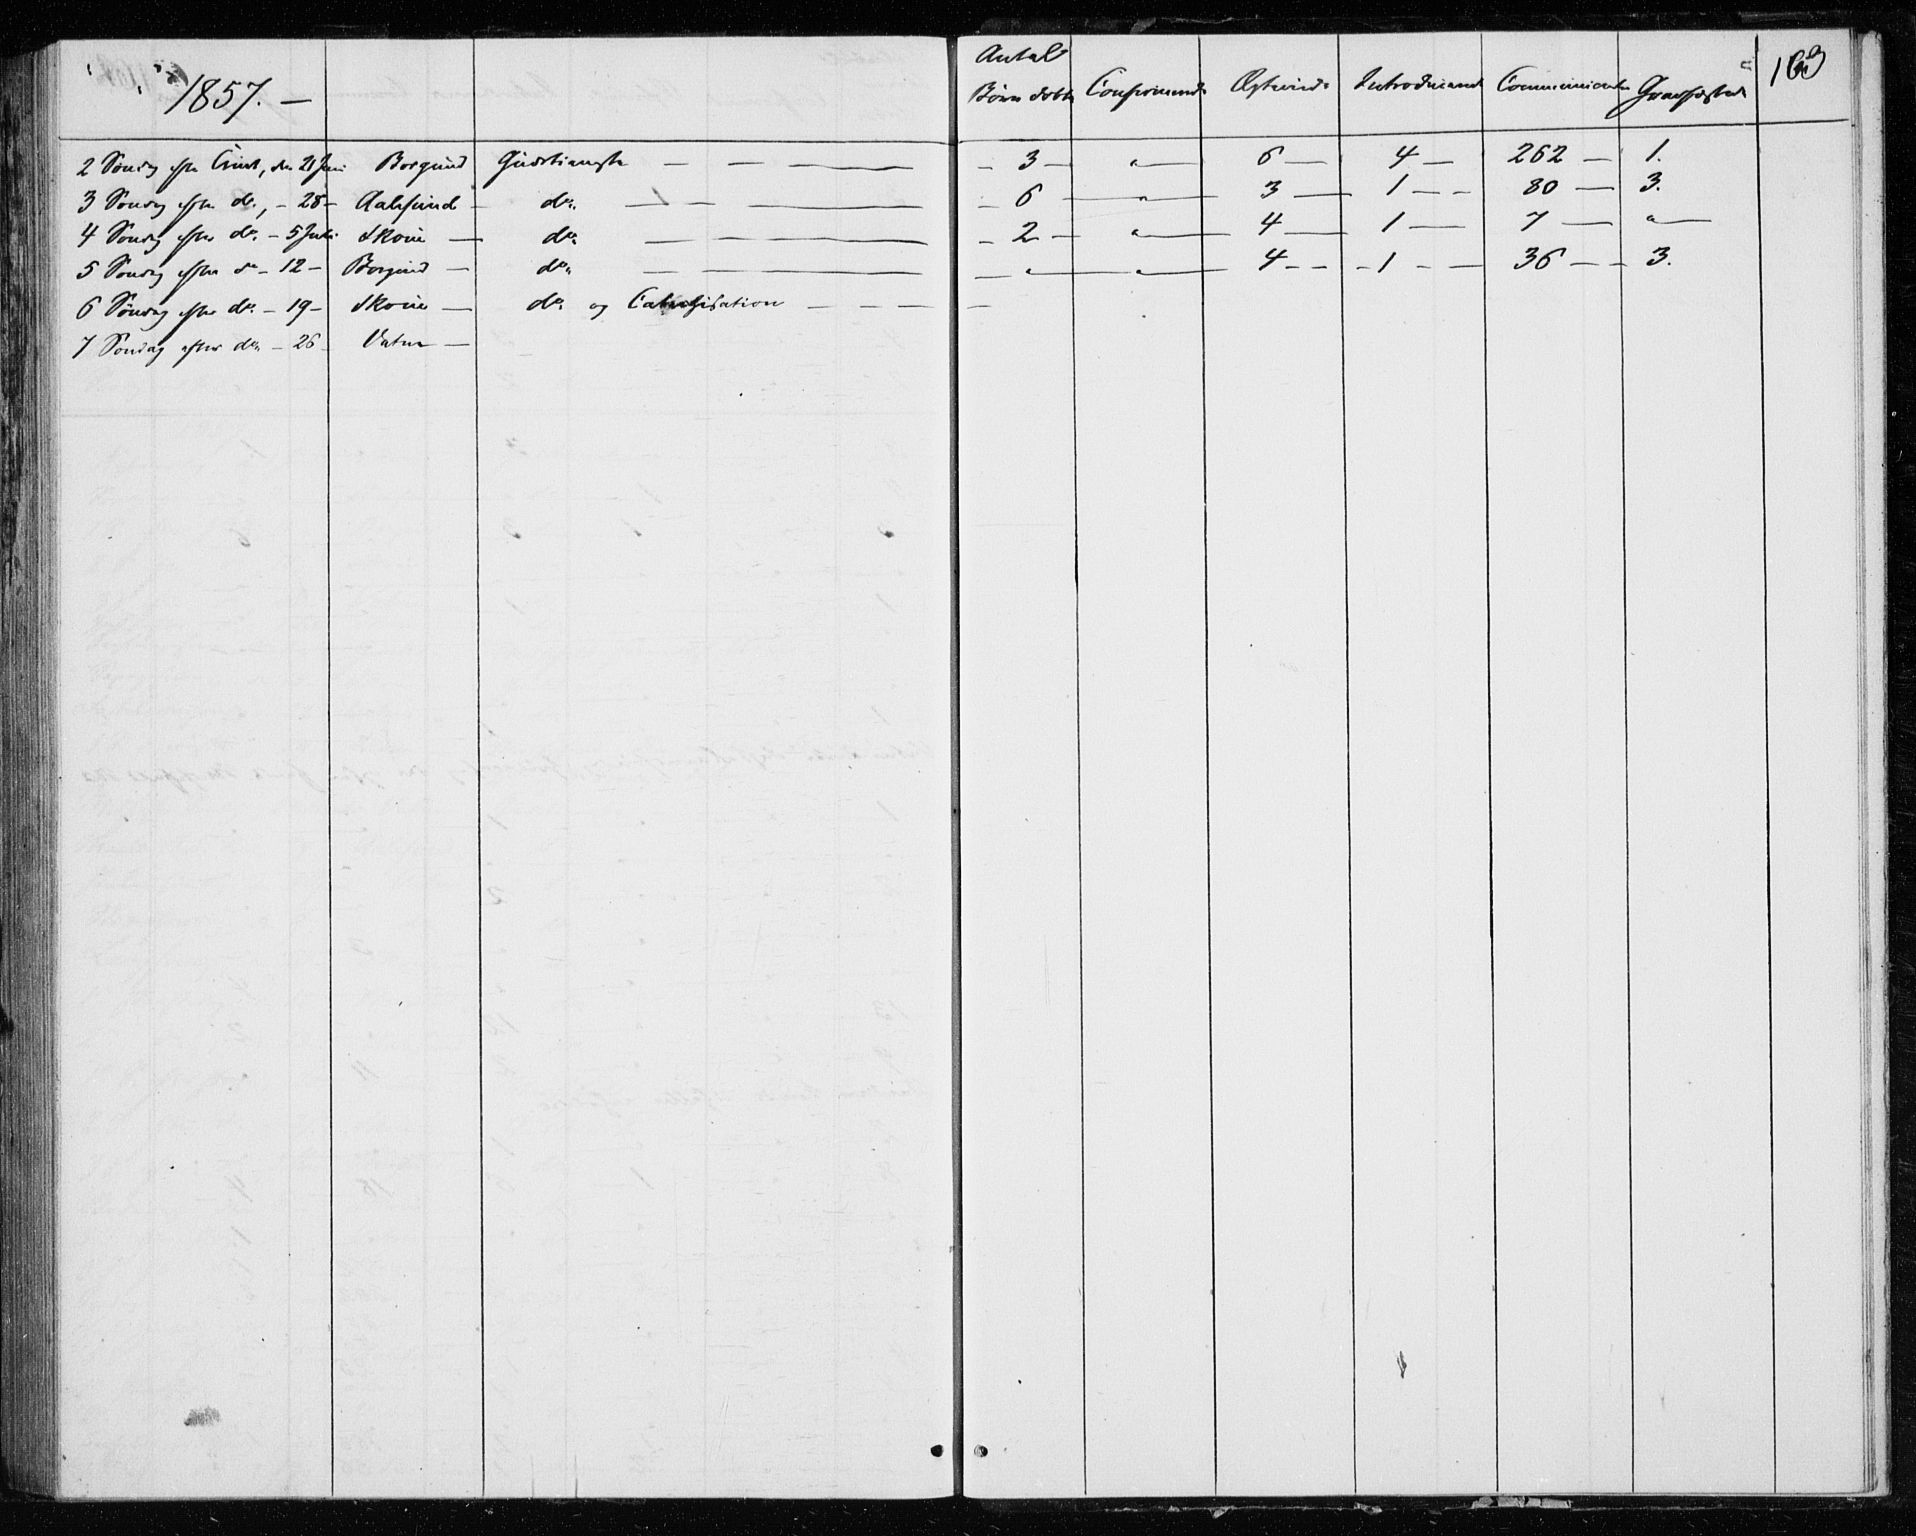 1857. —
Antal
Børn døbte Confirmerede Ægteviede Introducerende Communicanter Gravfæstede
163
2 Søndag efter Trinit, den 21 Juni Borgund Gudstieneste — — — — 3 — " — 6 — 4 — 262 — 1.
3 Søndag efter do., — 28 — Aalesund — do. — — — — 6 — " — 3 — 1 — — 80 — 3.
4 Søndag efter do. — 5 Juli Skove — do. — — — — 2 — " — 4 — 1 — 7 — " —
5 Søndag efter do — 12 — Borgund — do. — — — — " — " — 4 — — 1 — — 36 — — 3.
6 Søndag efter do. — 19 — Skove — do. og Catechisation — — — —
7 Søndag efter do. — 26 — Vatne —